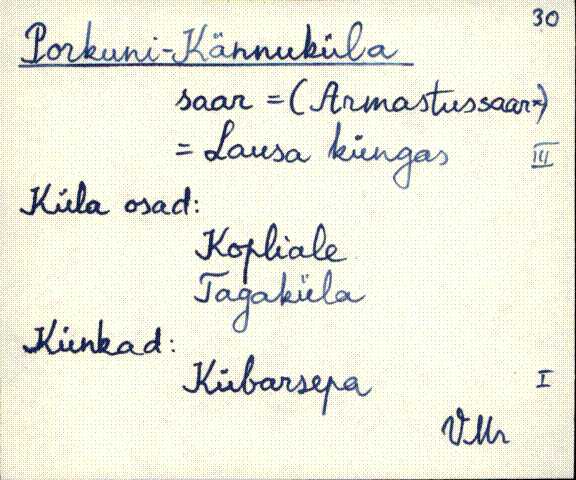 30
Porkuni-Kännuküla
saar = (Armastussaar×)
= Lausa küngas III
Küla osad:
Kopliale
Tagaküla
Künkad:
Kübarsepa I
VMr